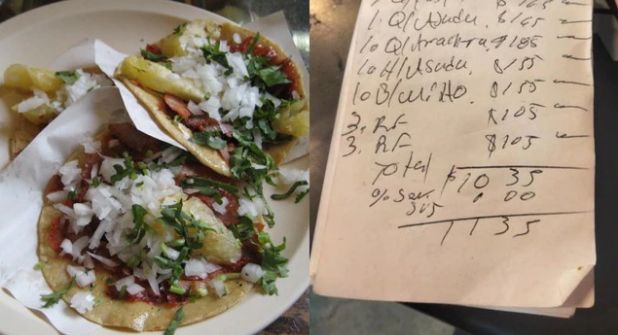 1. Q/Asada. $165
1. Q/Arrachera $185
1. H/Asada. $155
1. B/Mixto. $155
2. RF $105
3. RF $105
Total $1035
% Ser. 100
1135